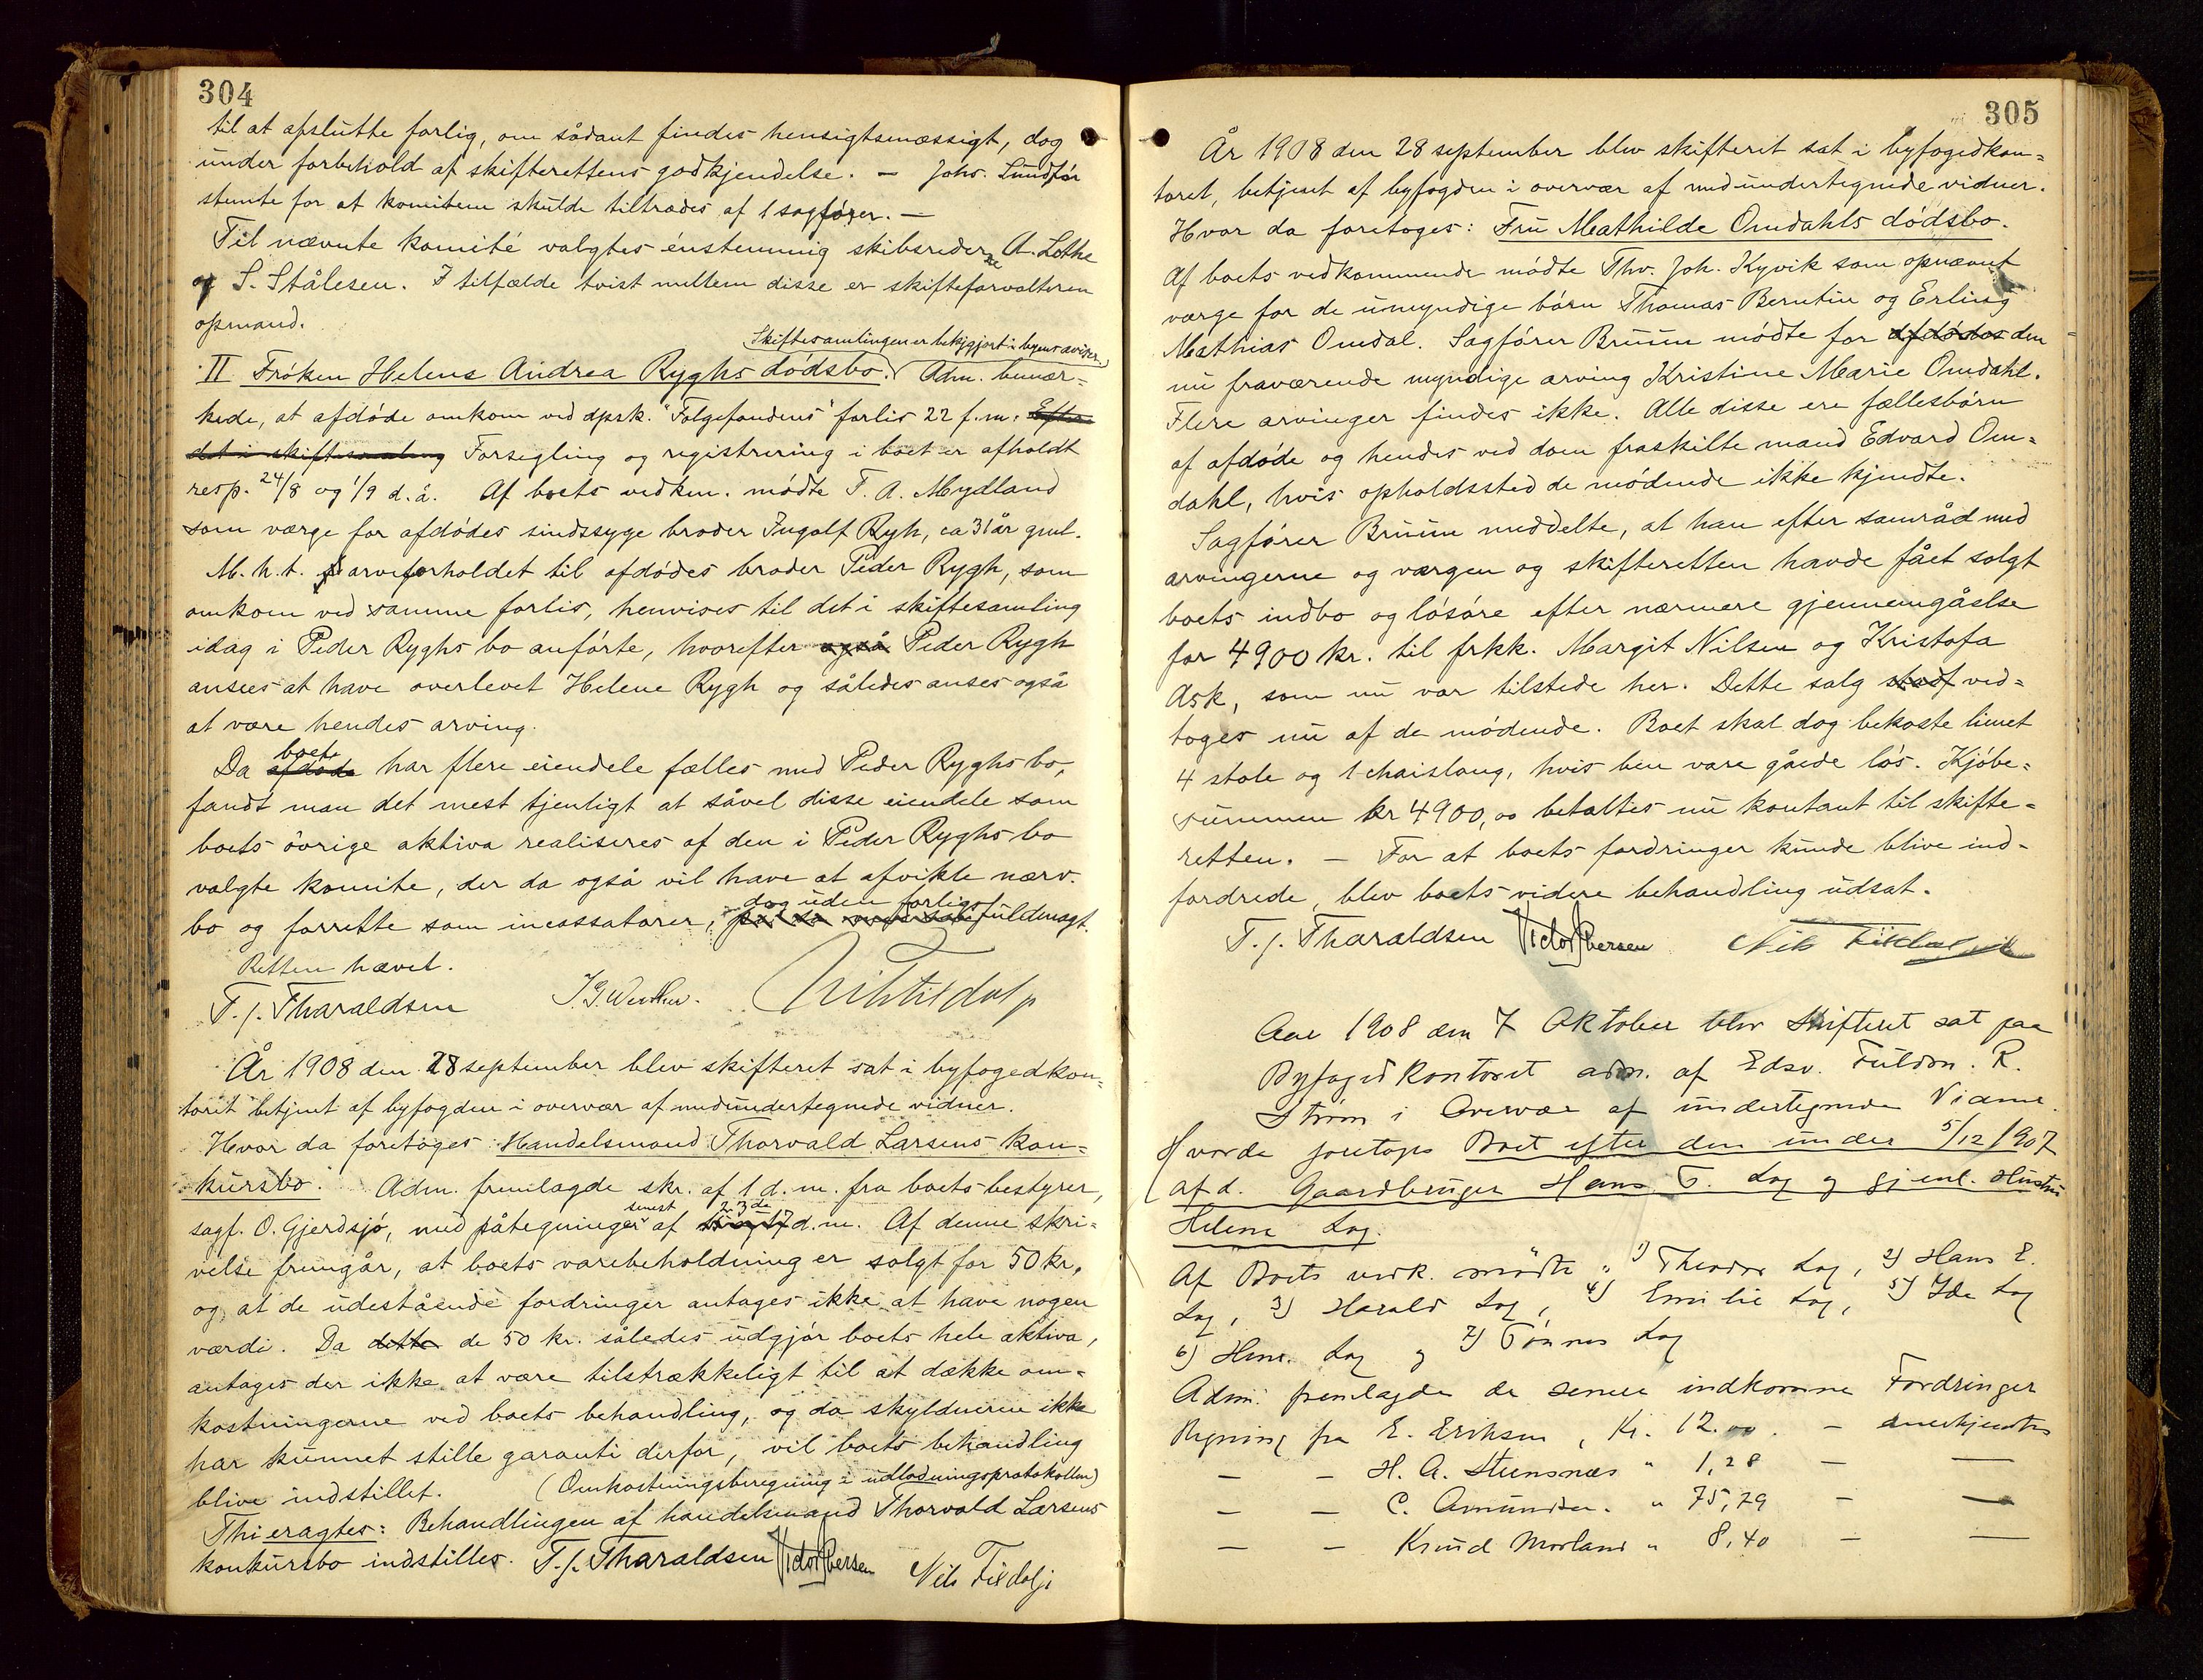 304
til at afslutte forlig, om sådant findes hensigtsmæssigt, dog
under forbehold af skifterettens godkjendelse. – Johs. Lundför
stemte for at komiteen skulde tiltrædes af 1 sagfører. –
Til nævnte komité valgtes énstemmig skibsrederne A. Lothe
og S. Stålesen. I tilfælde tvist mellem disse er skifteforvalteren
opmand.
Skiftesamlingen er bekjgjort i byens aviser.
II Frøken Helene Andrea Ryghs dödsbo. Adm. bemær-
kede, at afdöde omkom ved dpsk. "Folgefondens" forlis 22 f.m. Efter
det i skiftesamling Forsegling og registrering i boet er afholdt
resp. 24/8 og 1/9 d.å. Af boets vedkm. mödte T. A. Mydland
som værge for afdödes sindssyge broder Ingolf Rygh, ca 31 år gml.
M.h.t. arveforholdet til afdödes broder Peder Rygh, som
omkom ved samme forlis, henvises til det i skiftesamling
idag i Peder Ryghs bo anförte, hvorefter også Peder Rygh
ansees at have overlevet Helene Rygh og således anses også
at være hendes arving.
Da afdöde boet har flere eiendele fælles med Peder Ryghs bo,
fandt man det mest tjenligt at såvel disse eiendele som
boets övrige aktiva realiseres af den i Peder Ryghs bo
valgte komite, der da også vil have at afvikle nærv.
bo og forrette som incassatorer, dog uden forligsfuldmagt.
Retten hævet.
T. J. Tharaldsen
År 1908 den 28 september blev skifteret sat i byfogedkon-
toret betjent af byfogden i overvær af medundertegnede vidner.
Hvor da foretoges: Handelsmand Thorvald Larsens kon-
kursbo. Adm. fremlagde skr. af 1 d.m. fra boets bestyrer,
sagf. O. Gjerdsjö, med påtegninger senest af 23de d.m. Af denne skri-
velse fremgår, at boets varebeholdning er solgt for 50 kr.
og at de udestående fordringer antages ikke at have nogen
værdi. Da dette de 50 kr. således udgjör boets hele aktiva,
antages der ikke at være tilstrækkeligt til at dække om-
kostningerne ved boets behandling, og da skyldneren ikke
har kunnet stille garanti derfor, vil boets behandling
blive indstillet. (Omkostningsberegning i udlodningsprotokollen)
Thi eragtes: Behandlingen af handelsmand Thorvald Larsens
konkursbo indstilles. T. J. Tharaldsen Victor Ibersen Nils Fildalji
305
År 1908 den 28 september blev skifteret sat i byfogedkon-
toret, betjent af byfogden i overvær af medundertegnede vidner.
Hvor da foretoges: Fru Mathilde Omdahls dödsbo.
Af boets vedkommende mödte Thv. Joh. Kyvik som opnævnt
værge for de umyndige börn Thomas Berntin og Erling
Mathias Omdal. Sagförer Bruun mödte for afdödes den
nu fraværende myndige arving Kristine Marie Omdahl.
Flere arvinger findes ikke. Alle disse ere fællesbörn
af afdöde og hendes ved dom fraskilte mand Edvard Om-
dahl, hvis opholdssted de mödende ikke kjendte.
Sagförer Bruun meddelte, at han efter samråd med
arvingerne og værgen og skifteretten havde fået solgt
boets indbo og lösöre efter nærmere gjennemgåelse
for 4900 kr. til frkk. Margit Nilsen og Kristofa
Ask, som nu var tilstede her. Dette salg ved-
toges nu af de mödende. Boet skal dog bekoste limet
4 stole og 1 chaislong, hvis ben vare gåede lös. Kjöbe-
summen kr 4900,00 betaltes nu kontant til skifte-
retten. – For at boets fordringer kunde blive ind-
fordrede, blev boets videre behandling udsat.
T. J. Tharaldsen Victor Ibersen
Aar 1908 den 7 Oktober blev Skifteret sat paa
Byfogedkontoret adm. af Edsv. Fuldm. R.
Ström i Overvær af undertegnede Vidner.
Hvorda foretoges Boet efter den under 5/12 1907
afd. Gaardbruger Hans T. Lag og gjenl. Hustru
Helene Lag.
Af Boets vedk. mødte: 1) Theodor Lag, 2) Hans E.
Lag, 3) Harald Lag, 4) Emilie Lag, 5) Ida Lag
6) Lag og 7) Tønnes Lag
Adm. fremlagde de senere indkomne Fordringer
Regning fra E. Eriksen, Kr. 12.00. – anerkjendtes
– – H. A. Steensnæs " 1,28 – –
– – C. Amundsen. " 75,79 – –
– – Knud Morland " 8,40 – –